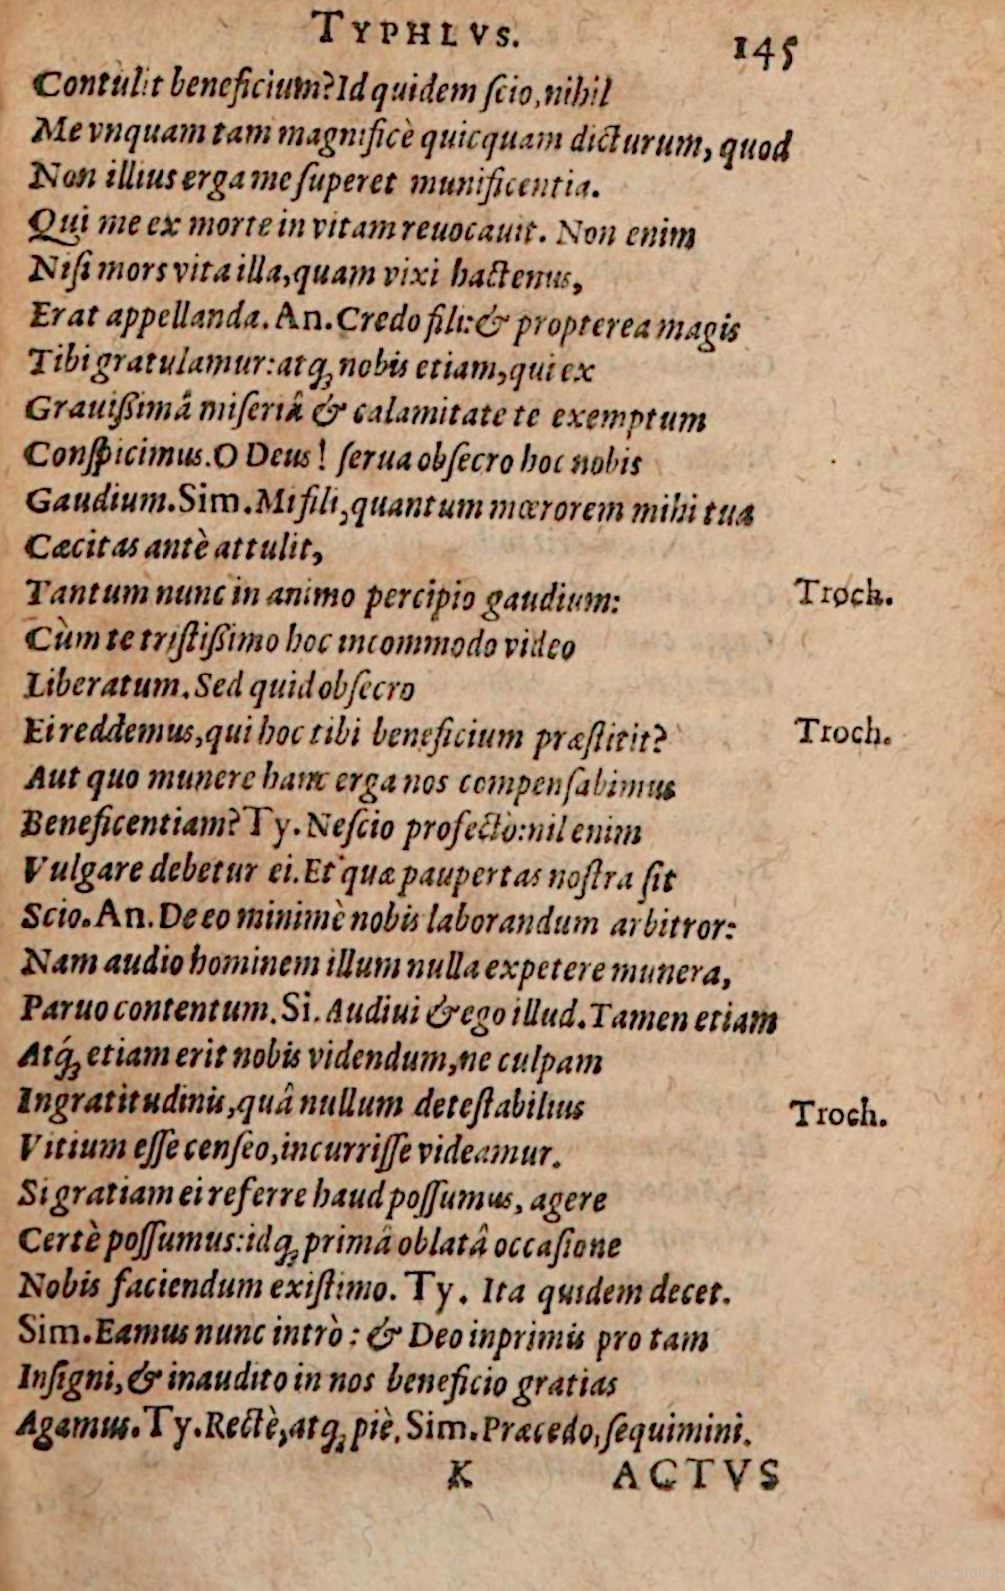 TYPHLVS.
145
Contulit beneficium? Id quidem ſcio, nihil
Me vnquam tam magnificè quicquam dicturum, quod
Non illius erga me ſuperet munificentia.
Qui me ex morte in vitam reuocauit. Non enim
Niſi mors vita illa, quam vixi hactenus,
Erat appellanda. An. Credo fili: & propterea magis
Tibi gratulamur: atq; nobis etiam, qui ex
Grauißimâ miſeriâ & calamitate te exemptum
Conſpicimus. O Deus! ſerua obſecro hoc nobis
Gaudium. Sim. Mi fili, quantum mœrorem mihi tua
Cæcitas antè attulit,
Tantum nunc in animo percipio gaudium: Troch.
Cùm te triſtißimo hoc incommodo video
Liberatum. Sed quid obſecro
Ei reddemus, qui hoc tibi beneficium præſtitit? Troch.
Aut quo munere hanc erga nos compenſabimus
Beneficentiam? Ty. Neſcio profectò: nil enim
Vulgare debetur ei. Et quæ paupertas noſtra ſit
Scio. An. De eo minimè nobis laborandum arbitror:
Nam audio hominem illum nulla expetere munera,
Paruo contentum. Si. Audiui & ego illud. Tamen etiam
Atq́; etiam erit nobis videndum, ne culpam
Ingratitudinis, quâ nullum deteſtabilius Troch.
Vitium eſſe cenſeo, incurriſſe videamur.
Si gratiam ei referre haud poſſumus, agere
Certè poſſumus: idq; primâ oblatâ occaſione
Nobis faciendum exiſtimo. Ty. Ita quidem decet.
Sim. Eamus nunc intrò: & Deo inprimis pro tam
Inſigni, & inaudito in nos beneficio gratias
Agamus. Ty. Rectè, atq; piè. Sim. Præcedo, ſequimini.
K ACTVS